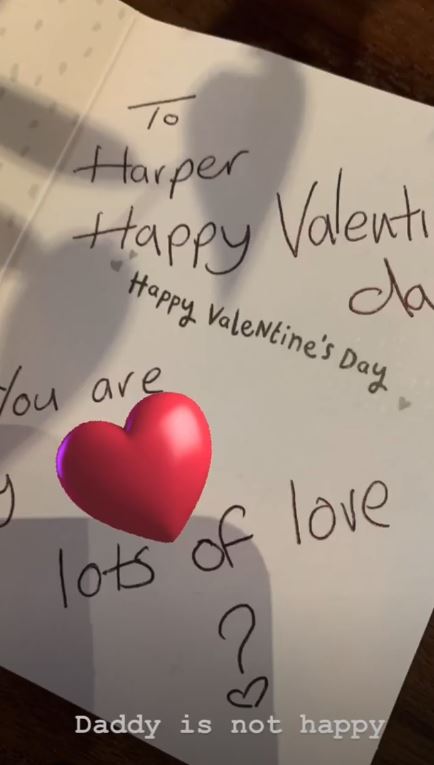 To
Harper
Happy Valenti
da
Happy Valentine's Day
You are
y
lots of love
?
Daddy is not happy